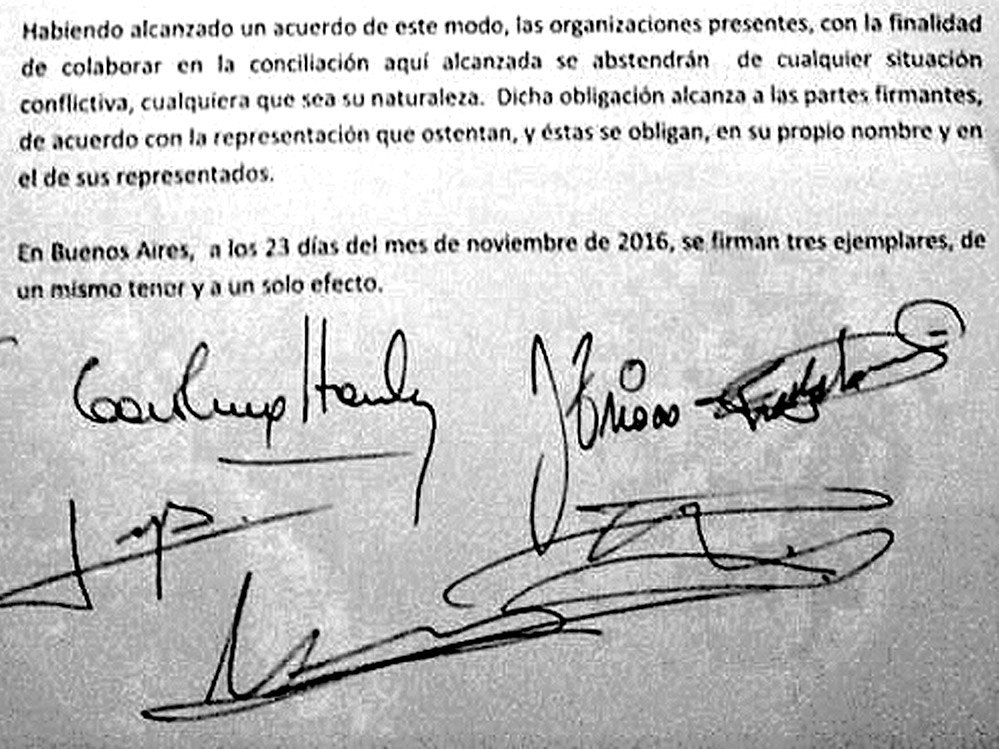 Habiendo alcanzado un acuerdo de este modo, las organizaciones presentes, con la finalidad
de colaborar en la conciliación aquí alcanzada se abstendrán de cualquier situación
conflictiva, cualquiera que sea su naturaleza. Dicha obligación alcanza a las partes firmantes,
de acuerdo con la representación que ostentan, y éstas se obligan, en su propio nombre y en
el de sus representados.
En Buenos Aires, a los 23 días del mes de noviembre de 2016, se firman tres ejemplares, de
un mismo tenor y a un solo efecto.